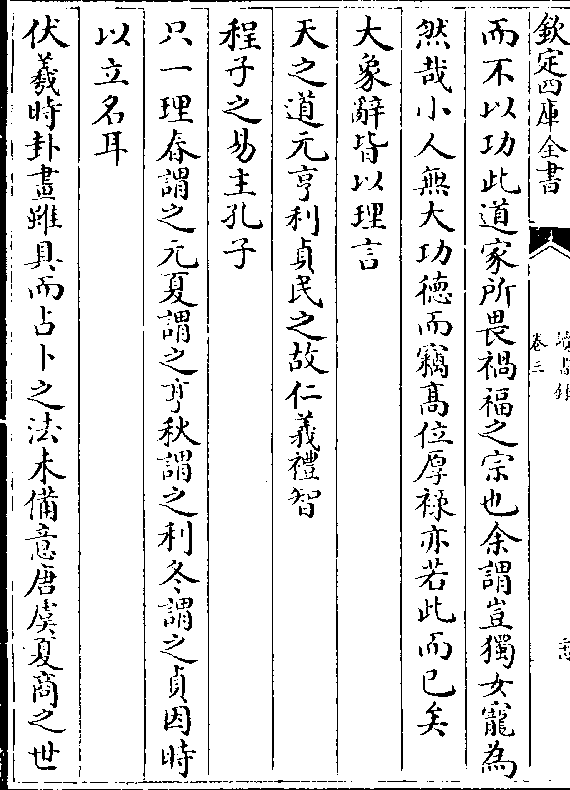 欽定四庫全書
卷三
而不以功此道家所畏禍福之宗也余謂豈獨女寵為
然哉小人無大功德而竊高位厚祿亦若此而已矣
大象辭皆以理言
天之道元亨利貞民之故仁義禮智
程子之易主孔子
只一理春謂之元夏謂之亨秋謂之利冬謂之貞因時
以立名耳
伏羲時卦畫雖具而占卜之法未備意唐虞夏商之世